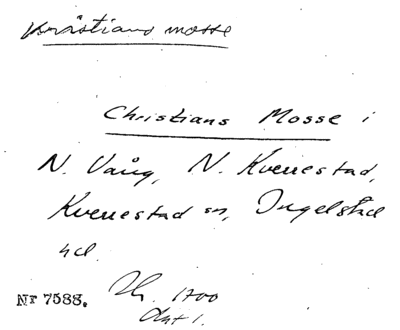 Kristians mosse
Christians Mosse i
N. Vång, N. Kverrestad,
Kverrestad sn, Ingelstad
hd.
Nr 7588. 1700